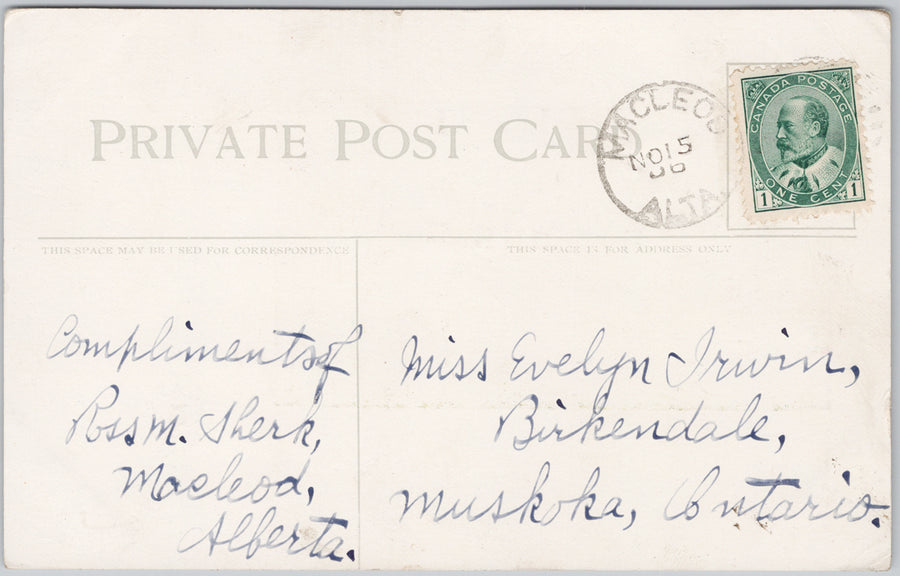 PRIVATE POST CARD
MACLEOD
NO 15
06
ALTA
CANADA POSTAGE
ONE CENT
1 1
THIS SPACE MAY BE USED FOR CORRESPONDENCE
THIS SPACE IS FOR ADDRESS ONLY
Compliments of
Ross M. Sherk,
Macleod,
Alberta.
Miss Evelyn Irwin,
Birkendale,
Muskoka, Ontario.